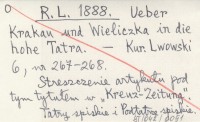 R. L. 1888. Ueber
Krakau und Wieliczka in die
hohe Tatra. — Kur. Lwowski
6, na 267-268.
Streszczenie artykułu pod
tym tytułem w „Kreuz-Zeitung".
Tatry spiskie i Podtatrze spiskie.